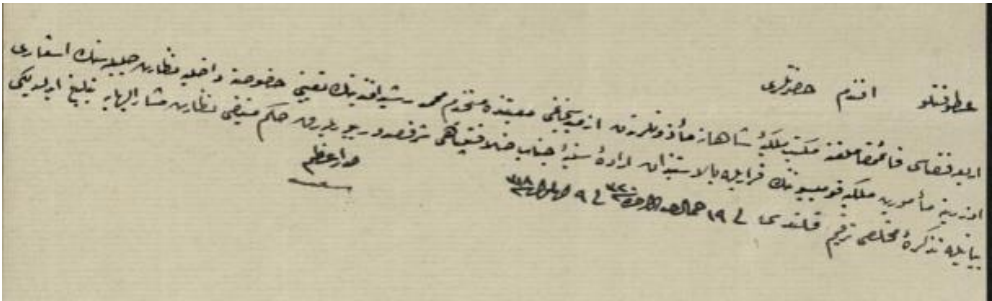 عطوفتلو افندم حضرتلری
قضاسی قائممقاملغنه مکتب ملکیهٔ شاهانه مأذونلرندن معیتنده مستخدم محمد رشید افندینك تعیینی خصوصنه داخلیه نظارت جلیله‌سنك اشعاری
اوزرینه مأمورین ملکیه قومیسیوننك قراریله بالاستیذان ارادهٔ سنیهٔ جناب خلافتپناهی شرفصدور بیوریلەرق حکم منیفی نظارت مشارالیهایه تبلیغ ایدلدیکی
بیانیله تذکرهٔ مخلصی ترقیم قلندی فی ١٩ جمادی الاخره ٣٢٠ فی ٩
صدر اعظم